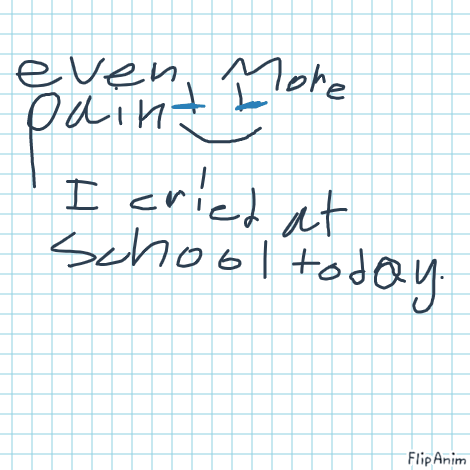 even More
pain
I cried at
school today.
FlipAnim